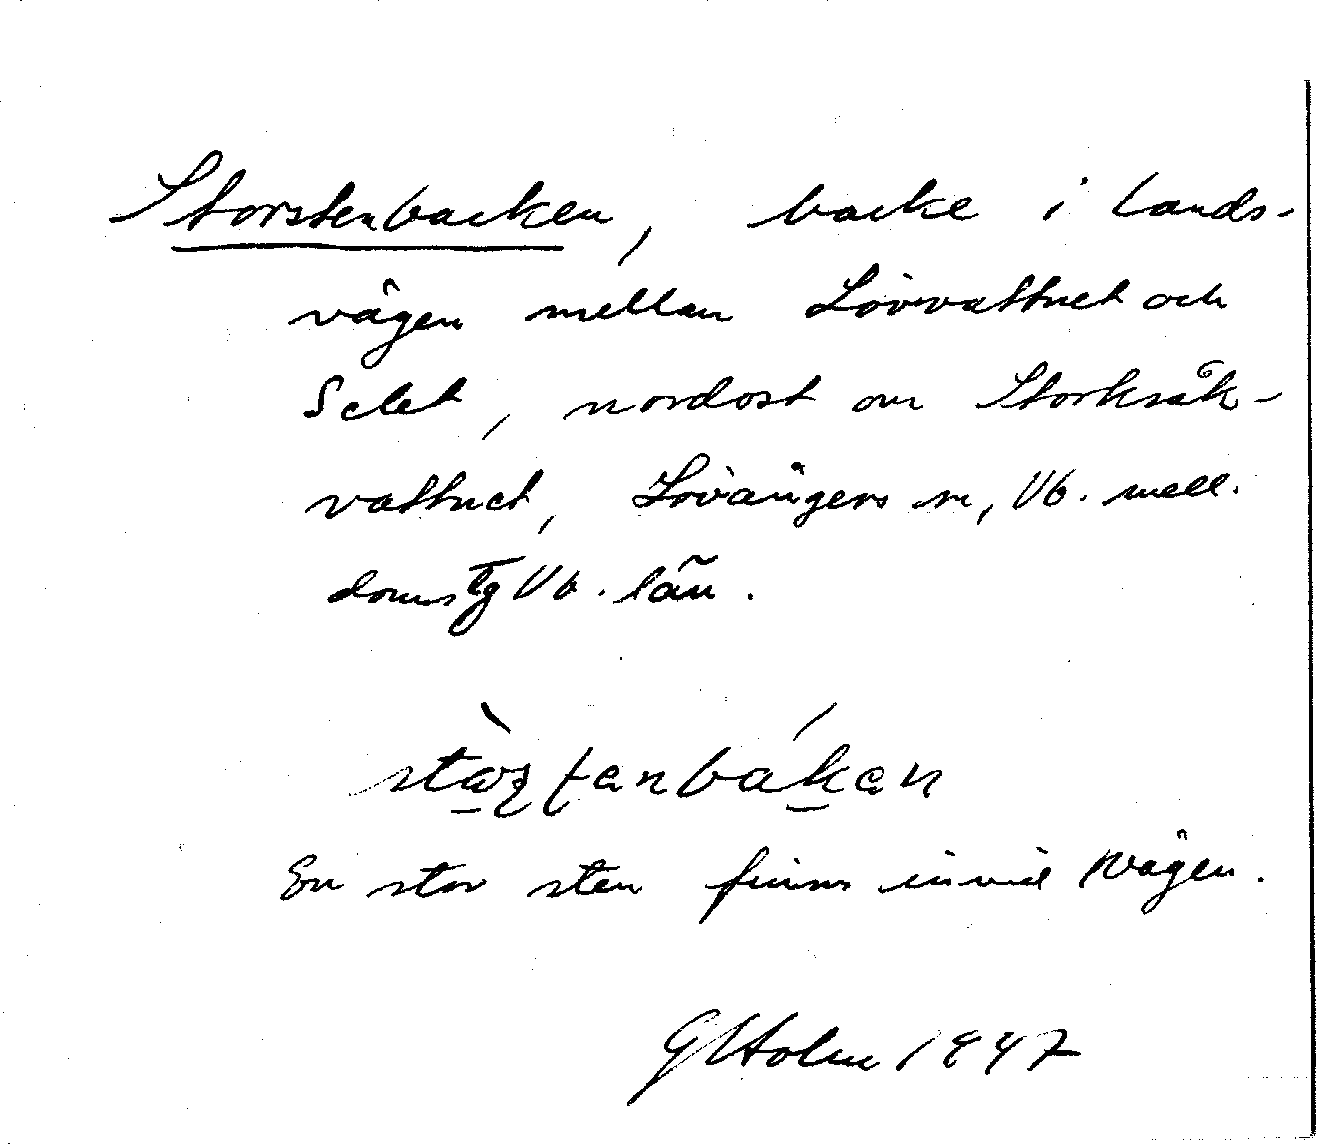 Storstenbacken, backe i lands-
vägen mellan Lövvattnet och
Selet, nordost om Storksåk-
vattnet, Lövångers sn, Vb. mell.
doms tg Vb. län.
En stor sten finns invid vägen.
GHolm 1947